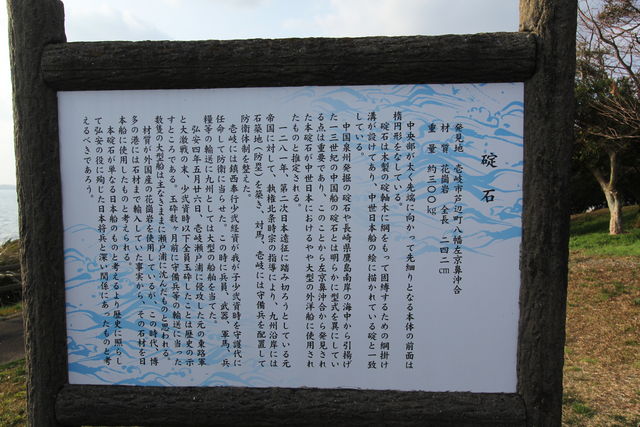 碇石
発見地 壱岐市芦辺町八幡左京鼻沖合
材質 花崗岩 全長 二四二㎝
重量 約三〇〇㎏
中央部が太く先端に向かって先細りとなる本体の前面は
楕円形をなしている。
碇石は木製の碇軸木に綱をもって固縛するための綱掛け
溝が設けてあり、中世日本船の絵に描かれている碇と一致
している。
中国泉州発掘の碇石や長崎県鷹島南岸の海中から引揚げ
た一三世紀の中国船の碇石とは明らかに型式を異にしてい
る点は重要であり、このことから左京鼻沖合から発見され
た本碇石が中世日本におけるやや大型の外洋船に使用され
たものと推定される。
一二八一年、第二次日本遠征に踏み切ろうとしている元
帝国に対して、執権北条時宗の指導により、九州沿岸には
石築地(防塁)を築き、対馬、壱岐には守備兵を配置して
防衛体制を整えた。
壱岐には鎮西奉行少弐経資が我が子少弐資時を守護代に
任命して防衛に当らせた。この時に兵員、武器、軍馬、兵
糧等の輸送に九州としては大型の船舶を当てた。
弘安四年五月二六日、壱岐瀬戸浦に侵攻した元の東路軍
と大激戦の末、少弐資時以下全員玉砕したことは歴史の示
すところである。玉砕数ヶ月前に守備兵等の輸送に当った
数隻の大型船は主なきままに瀬戸浦に沈んだものと思われる。
材質が外国産の花崗岩を使用しているが、この時代、博
多の港には石材まで輸入していた事実から、その石材を日
本船に使用したものと考えられる。
本碇石が単なる日本船のものと考えるより歴史に照らし
て弘安の役に殉じた日本将兵と深い関係にあったものと考
えるべきであろう。